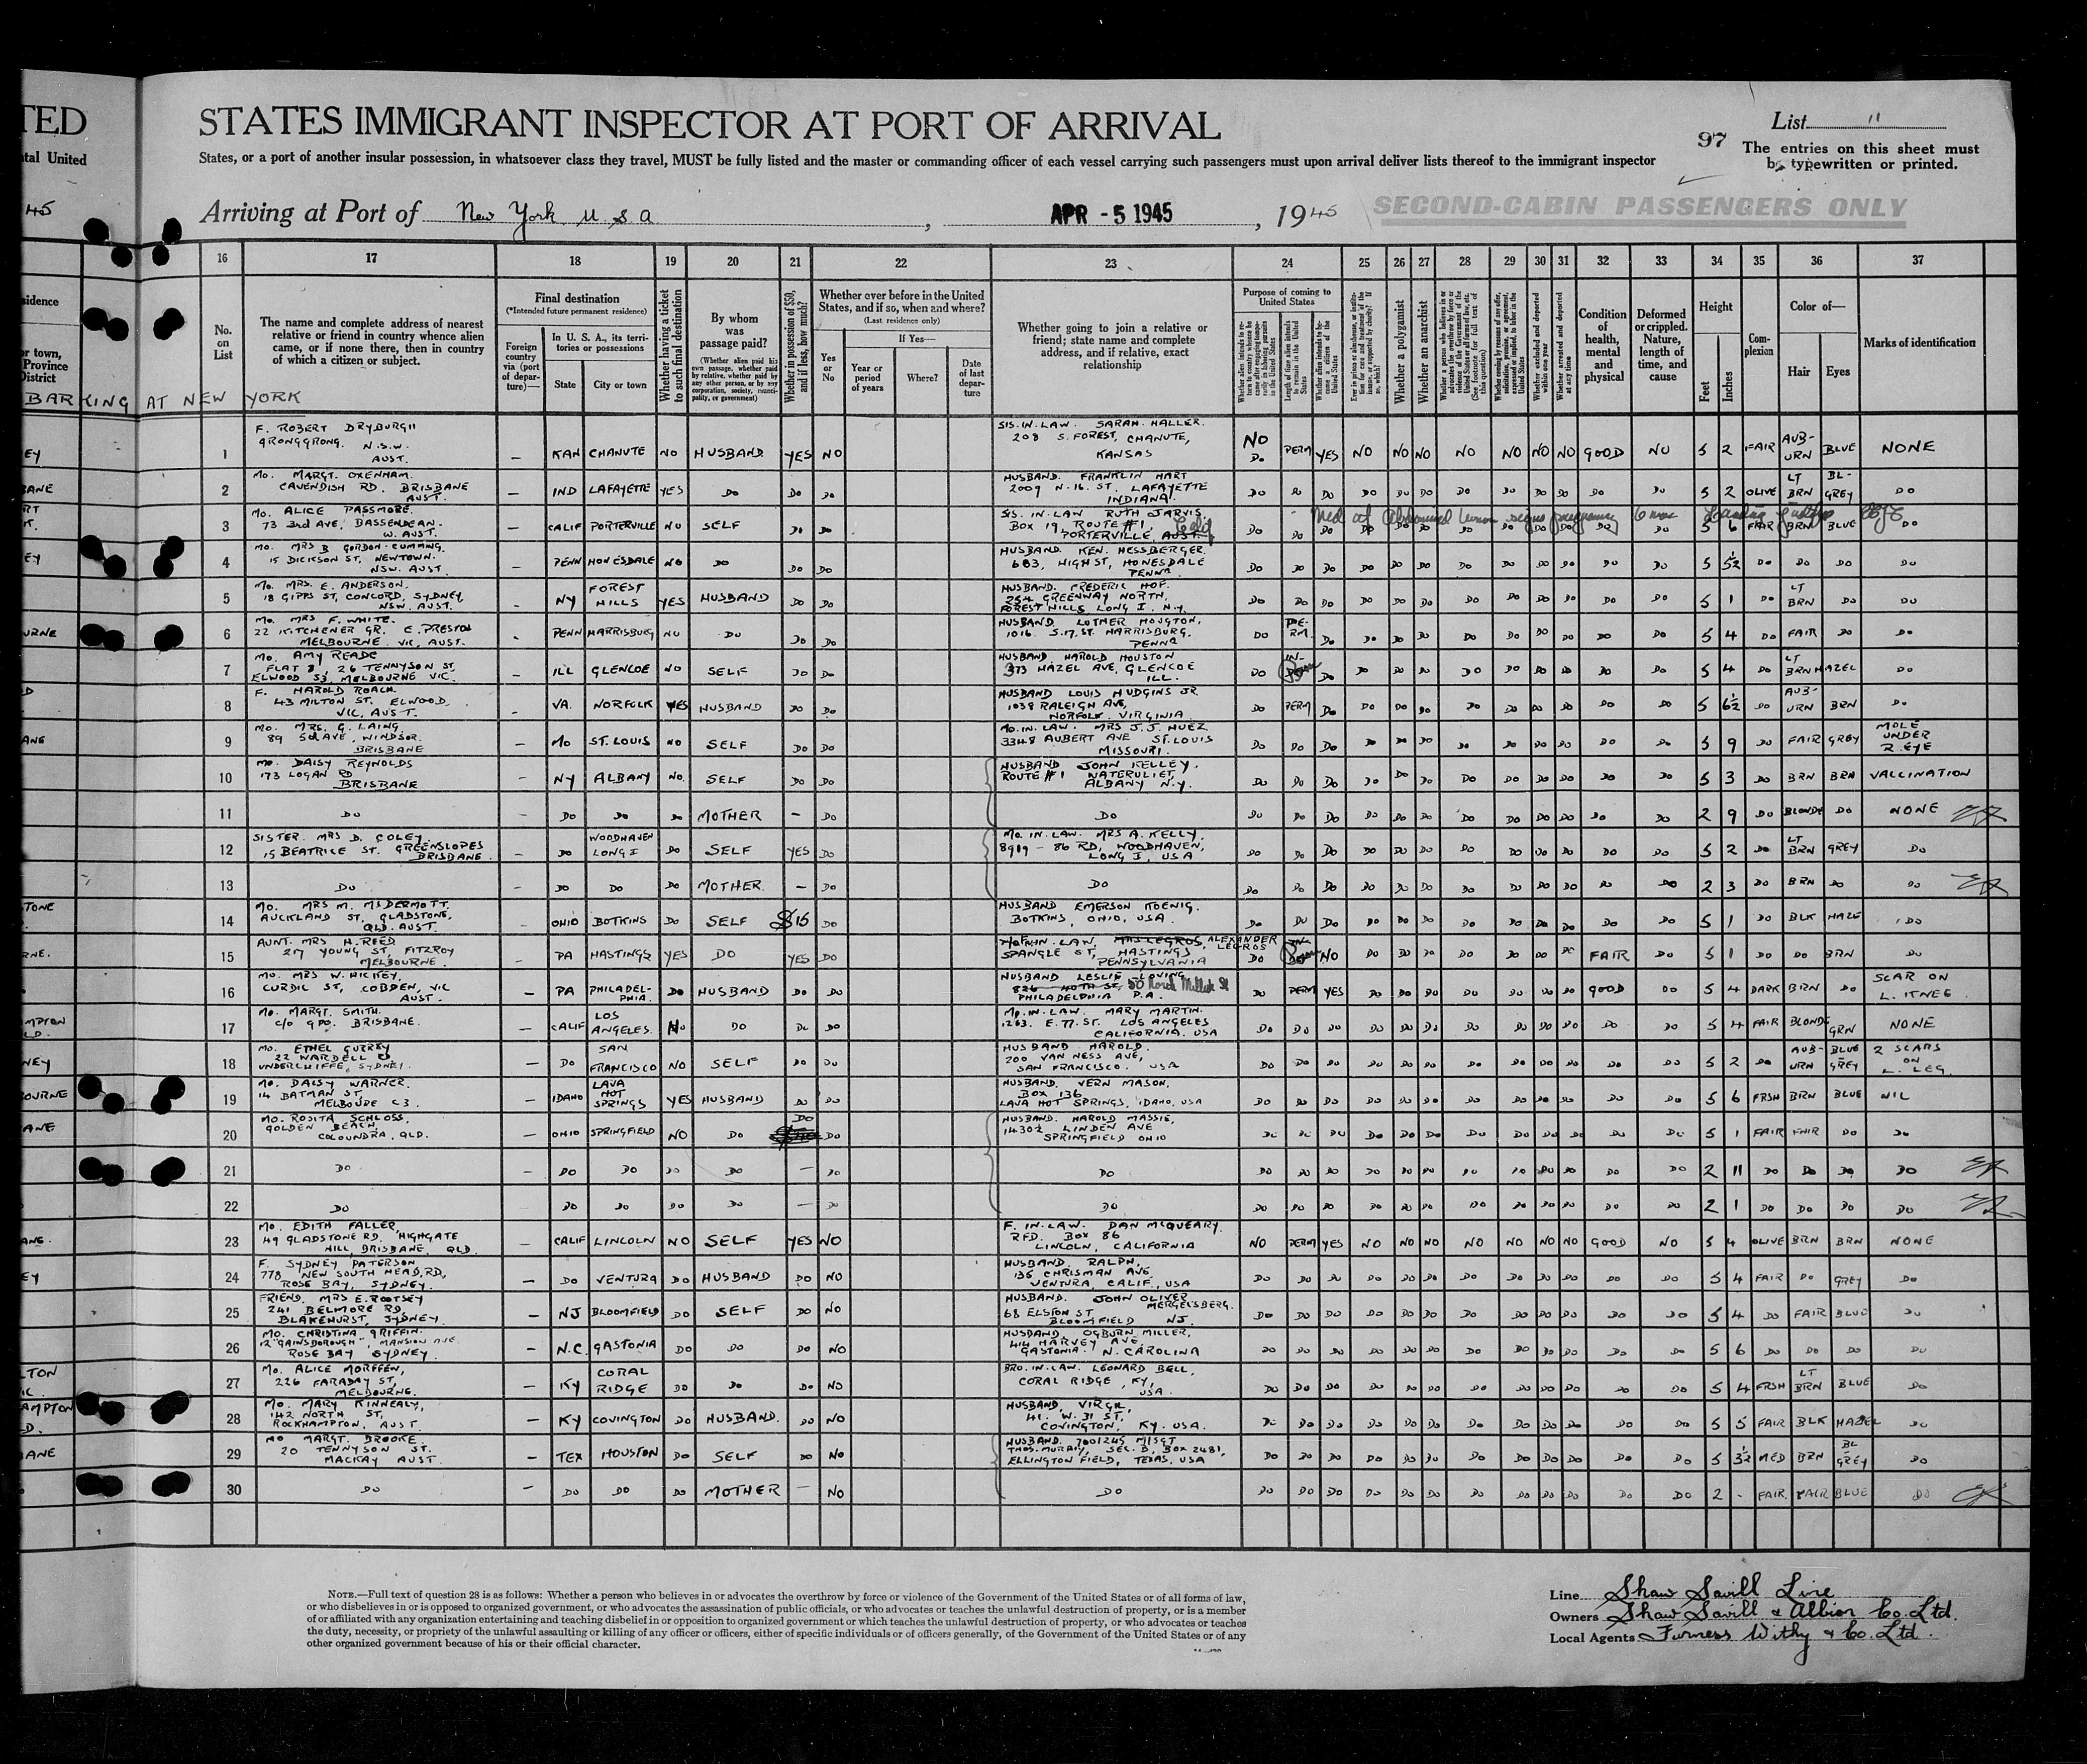 TED
STATES IMMIGRANT INSPECTOR AT PORT OF ARRIVAL
List 11
97
ntal United
States, or a port of another insular possession, in whatsoever class they travel, MUST be fully listed and the master or commanding officer of each vessel carrying such passengers must upon arrival deliver lists thereof to the immigrant inspector
The entries on this sheet must
be typewritten or printed.
45
Arriving at Port of New York U.S.A., APR - 5 1945, 1945
SECOND-CABIN PASSENGERS ONLY
16 17 18 19 20 21 22 23 24 25 26 27 28 29 30 31 32 33 34 35 36 37
No. on List
The name and complete address of nearest relative or friend in country whence alien came, or if none there, then in country of which a citizen or subject.
Final destination
(*Intended future permanent residence)
Foreign country via (port of departure)—
In U. S. A., its territories or possessions
State
City or town
Whether having a ticket to such final destination
By whom was passage paid?
(Whether alien paid his own passage, whether paid by relative, whether paid by any other person, or by any corporation, society, municipality, or government)
Whether in possession of $50, and if less, how much?
Whether ever before in the United States, and if so, when and where?
(Last residence only)
Yes or No
If Yes—
Year or period of years
Where?
Date of last departure
Whether going to join a relative or friend; state name and complete address, and if relative, exact relationship
Purpose of coming to United States
Whether a polygamist
Whether an anarchist
Condition of health, mental and physical
Deformed or crippled. Nature, length of time, and cause
Height
Feet
Inches
Complexion
Color of—
Hair
Eyes
Marks of identification
BARKING AT NEW YORK
1 F. ROBERT DRYBURGH GRONGGRONG. N.S.W. AUST. — KAN CHANUTE NO HUSBAND YES NO SIS. IN. LAW. SARAH. HALLER. 208 S. FOREST, CHANUTE, KANSAS NO DO PERM YES NO NO NO NO NO NO NO GOOD NO 5 2 FAIR AUBURN BLUE NONE
2 MO. MARGT. OXENHAM. CAVENDISH RD. BRISBANE AUST. — IND LAFAYETTE YES DO DO DO HUSBAND. FRANKLIN HART 2009 N. 16. ST. LAFAYETTE INDIANA. DO DO DO DO DO DO DO DO DO DO DO DO 5 2 OLIVE LT BRN BL-GREY DO
3 MO. ALICE PASSMORE. 73 3rd AVE, BASSENDEAN. W. AUST. — CALIF PORTERVILLE NO SELF DO DO SIS. IN LAW RUTH JARVIS. BOX 19, ROUTE #1, PORTERVILLE, AUST. Calif DO DO DO DO DO DO DO DO DO DO DO DO 5 6 FAIR BRN BLUE DO
4 MO. MRS B GORDON-CUMMING. 15 DICKSON ST, NEWTOWN. NSW. AUST. — PENN HONESDALE NO DO DO DO HUSBAND. KEN. HESSBERGER. 683, HIGH ST, HONESDALE PENNA. DO DO DO DO DO DO DO DO DO DO DO DO 5 5½ DO DO DO DO
5 MO. MRS. E. ANDERSON. 18 GIPPS ST, CONCORD, SYDNEY, NSW. AUST. - NY FOREST HILLS YES HUSBAND DO DO HUSBAND. FREDERIC HOF. 254 GREENWAY NORTH, FOREST HILLS LONG I. N.Y. DO DO DO DO DO DO DO DO DO DO DO DO 5 1 DO LT BRN DO DO
6 MO. MRS F. WHITE. 22 KITCHENER GR. E. PRESTON MELBOURNE. VIC, AUST. - PENN HARRISBURG NO DO DO DO HUSBAND LUTHER HOUGTON, 1016. S.17. ST. HARRISBURG. PENNA DO PERM. DO DO DO DO DO DO DO DO DO DO 5 4 DO FAIR DO DO
7 MO. AMY READE FLAT 8, 26 TENNYSON ST, ELWOOD S3. MELBOURNE VIC. — ILL GLENCOE NO SELF DO DO HUSBAND HAROLD HOUSTON 373 HAZEL AVE, GLENCOE ILL. DO DO DO DO DO DO DO DO DO DO DO 5 4 DO LT BRN HAZEL DO
8 F. HAROLD ROACH. 43 MILTON ST. ELWOOD, VIC, AUST. — VA. NORFOLK YES HUSBAND DO DO HUSBAND LOUIS HUDGINS JR. 1038 RALEIGH AVE, NORFOLK. VIRGINIA DO PERM DO DO DO DO DO DO DO DO DO DO 5 6½ DO AUBURN BRN DO
9 MO. MRS. G. LAING. 89 5th AVE, WINDSOR. BRISBANE — MO ST. LOUIS NO SELF DO DO MO. IN. LAW. MRS J. J. HUEZ 3348 AUBERT AVE ST. LOUIS MISSOURI. DO DO DO DO DO DO DO DO DO DO DO DO 5 9 DO FAIR GREY MOLE UNDER R. EYE
10 MO. DAISY REYNOLDS 173 LOGAN RD BRISBANE — NY ALBANY NO. SELF DO DO HUSBAND JOHN KELLEY. ROUTE #1 WATERVLIET, ALBANY N.Y. DO DO DO DO DO DO DO DO DO DO DO DO 5 3 DO BRN BRN VACCINATION
11 DO — DO DO DO MOTHER — DO DO DO DO DO DO DO DO DO DO DO DO DO DO 2 9 DO BLONDE DO NONE
12 SISTER. MRS D. COLEY. 15 BEATRICE ST. GREENSLOPES BRISBANE. — DO WOODHAVEN LONG I DO SELF YES DO MO. IN. LAW. MRS A. KELLY, 8919 - 86 RD, WOODHAVEN, LONG I, USA DO DO DO DO DO DO DO DO DO DO DO DO 5 2 DO LT BRN GREY DO
13 DO — DO DO DO MOTHER. — DO DO DO DO DO DO DO DO DO DO DO DO DO DO 2 3 DO BRN DO DO
14 MO. MRS M. McDERMOTT. AUCKLAND ST, GLADSTONE, QLD. AUST. — OHIO BOTKINS DO SELF $15 DO HUSBAND EMERSON KOENIG. BOTKINS, OHIO, USA. DO DO DO DO DO DO DO DO DO DO DO DO 5 1 DO BLK HAZE DO
15 AUNT. MRS H. REED 217 YOUNG ST, FITZROY MELBOURNE — PA HASTINGS YES DO YES DO IN. LAW, MRS LEGROS, ALEXANDER LEGROS SPANGLE ST, HASTINGS PENNSYLVANIA DO NO DO DO DO DO DO DO DO FAIR DO 5 1 DO DO BRN DO
16 MO. MRS W. HICKEY, CURDIE ST, COBDEN, VIC AUST. — PA PHILADELPHIA. DO HUSBAND DO DO HUSBAND LESLIE LOVING 826 40TH ST, PHILADELPHIA P.A. DO PERM YES DO DO DO DO DO DO DO GOOD DO 5 4 DARK BRN DO SCAR ON L. KNEE.
17 MO. MARGT. SMITH. c/o GPO. BRISBANE. — CALIF LOS ANGELES. NO DO DO DO MO. IN. LAW. MARY MARTIN. 1263. E. 77. ST. LOS ANGELES CALIFORNIA. USA DO DO DO DO DO DO DO DO DO DO DO DO 5 4 FAIR BLONDE GRN NONE
18 MO. ETHEL GURREY 22 WARDELL RD UNDERCLIFFE, SYDNEY. — DO SAN FRANCISCO NO SELF DO DO HUSBAND HAROLD. 200 VAN NESS AVE, SAN FRANCISCO. USA DO DO DO DO DO DO DO DO DO DO DO DO 5 2 DO AUBURN BLUE GREY 2 SCARS ON L. LEG.
19 MO. DAISY WARNER. 14 BATMAN ST, MELBOUDE C3. — IDAHO LAVA HOT SPRINGS YES HUSBAND DO DO HUSBAND. VERN MASON, BOX 136 LAVA HOT SPRINGS, IDAHO, USA DO DO DO DO DO DO DO DO DO DO DO DO 5 6 FRSH BRN BLUE NIL
20 MO. ROSITA SCHLOSS, GOLDEN BEACH, COLOUNDRA, QLD. — OHIO SPRINGFIELD NO DO DO DO HUSBAND. HAROLD MASSIE, 1430½ LINDEN AVE SPRINGFIELD OHIO DO DO DO DO DO DO DO DO DO DO DO DO 5 1 FAIR FAIR DO DO
21 DO — DO DO DO DO — DO DO DO DO DO DO DO DO DO DO DO DO DO DO 2 11 DO DO DO DO
22 DO DO DO DO DO — DO DO DO DO DO DO DO DO DO DO DO DO DO DO 2 1 DO DO DO DO
23 MO. EDITH FALLER, 49 GLADSTONE RD. HIGHGATE HILL, BRISBANE, QLD. — CALIF LINCOLN NO SELF YES NO F. IN. LAW. DAN McQUEARY. RFD. BOX 86 LINCOLN, CALIFORNIA NO PERM YES NO NO NO NO NO NO NO GOOD NO 5 4 OLIVE BRN BRN NONE
24 F. SYDNEY PATERSON 778 NEW SOUTH HEAD, RD, ROSE BAY, SYDNEY. — DO VENTURA DO HUSBAND DO NO HUSBAND. RALPH, 136 CHRISMAN AVE VENTURA, CALIF, USA DO DO DO DO DO DO DO DO DO DO DO DO 5 4 FAIR DO GREY DO
25 FRIEND. MRS E. ROOTSEY 241 BELMORE RD, BLAKEHURST, SYDNEY — NJ BLOOMFIELD DO SELF DO NO HUSBAND. JOHN OLIVER MERGELSBERG. 68 ELSTON ST BLOOMFIELD NJ. DO DO DO DO DO DO DO DO DO DO DO DO 5 4 DO FAIR BLUE DO
26 MO. CHRISTINA GRIFFIN. 12 "GAINSBOROUGH", MANSION AVE. ROSE BAY SYDNEY — N.C. GASTONIA DO DO DO NO HUSBAND, OGBURN MILLER, 414 HARVEY AVE, GASTONIA. N. CAROLINA DO DO DO DO DO DO DO DO DO DO DO DO 5 6 DO DO DO DO
27 MO. ALICE MORFFEN, 226 FARADAY ST, MELBOURNE. — KY CORAL RIDGE DO DO DO NO BRO. IN. LAW. LEONARD BELL, CORAL RIDGE, KY, USA. DO DO DO DO DO DO DO DO DO DO DO DO 5 4 FRSH LT BRN BLUE DO
28 MO. MARY KINNEALY, 142 NORTH ST, ROCKHAMPTON, AUST — KY COVINGTON DO HUSBAND. DO NO HUSBAND, VIRGIL, 41. W. 31 ST, COVINGTON, KY. USA. DO DO DO DO DO DO DO DO DO DO DO DO 5 5 FAIR BLK HAZEL DO
29 MO MARGT. BROOKE 20 TENNYSON ST. MACKAY AUST. — TEX HOUSTON DO SELF DO NO HUSBAND. 7001245 M/SGT THOS. MURRAY, SEC. D, BOX 2481, ELLINGTON FIELD, TEXAS, USA DO DO DO DO DO DO DO DO DO DO DO DO 5 3½ MED BRN BL GREY DO
30 DO — DO DO DO MOTHER — NO DO DO DO DO DO DO DO DO DO DO DO DO DO 2 - FAIR. FAIR BLUE DO
NOTE.—Full text of question 28 is as follows: Whether a person who believes in or advocates the overthrow by force or violence of the Government of the United States or of all forms of law,
or who disbelieves in or is opposed to organized government, or who advocates the assassination of public officials, or who advocates or teaches the unlawful destruction of property, or is a member
of or affiliated with any organization entertaining and teaching disbelief in or opposition to organized government or which teaches the unlawful destruction of property, or who advocates or teaches
the duty, necessity, or propriety of the unlawful assaulting or killing of any officer or officers, either of specific individuals or of officers generally, of the Government of the United States or of any
other organized government because of his or their official character.
Line Shaw Savill Line
Owners Shaw Savill & Albion Co. Ltd.
Local Agents Furness Withy & Co. Ltd.